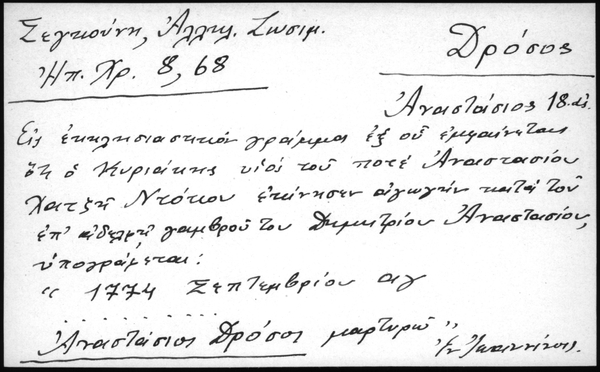 Σεγκούνη, Ἀλληλ. Ζωσιμ.
Ἠπ. Χρ. 8, 68
Δρόσος
Ἀναστάσιος 18. αἰ.
Εἰς ἐκκλησιαστικὸν γράμμα ἐξ οὗ ἐμφαίνεται
ὅτι ὁ Κυριάκης υἱὸς τοῦ ποτέ Ἀναστασίου
Χατζῆ Ντόκου ἐκίνησεν ἀγωγὴν κατὰ τοῦ
ἐπ' ἀδελφῇ γαμβροῦ του Δημητρίου Ἀναστασίου,
ὑπογράφεται:
" 1774 Σεπτεμβρίου αγ
. . . . . . . . . .
Ἀναστάσιος Δρόσος μαρτυρῶ "
Ἐν Ἰωαννίνοις.